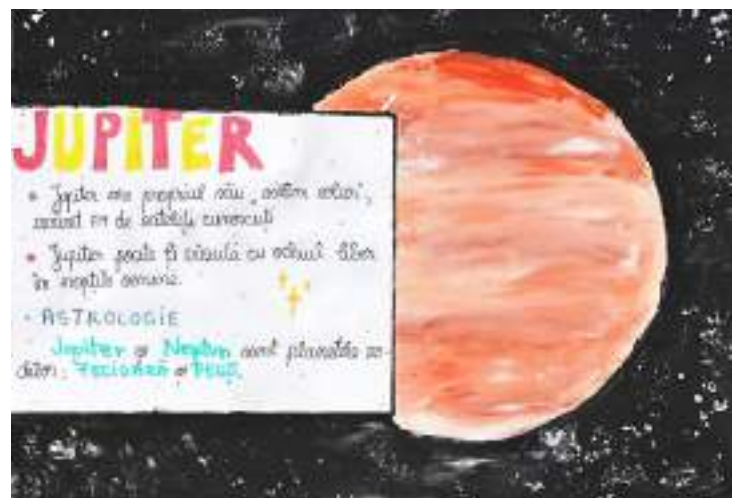 JUPITER
• Jupiter are propriul său „sistem solar”,
de sateliți cunoscuți
• Jupiter poate fi văzută cu ochiul liber
în nopțile senine.
• ASTROLOGIE
Jupiter și Neptun sunt planetele zo-
diilor: și